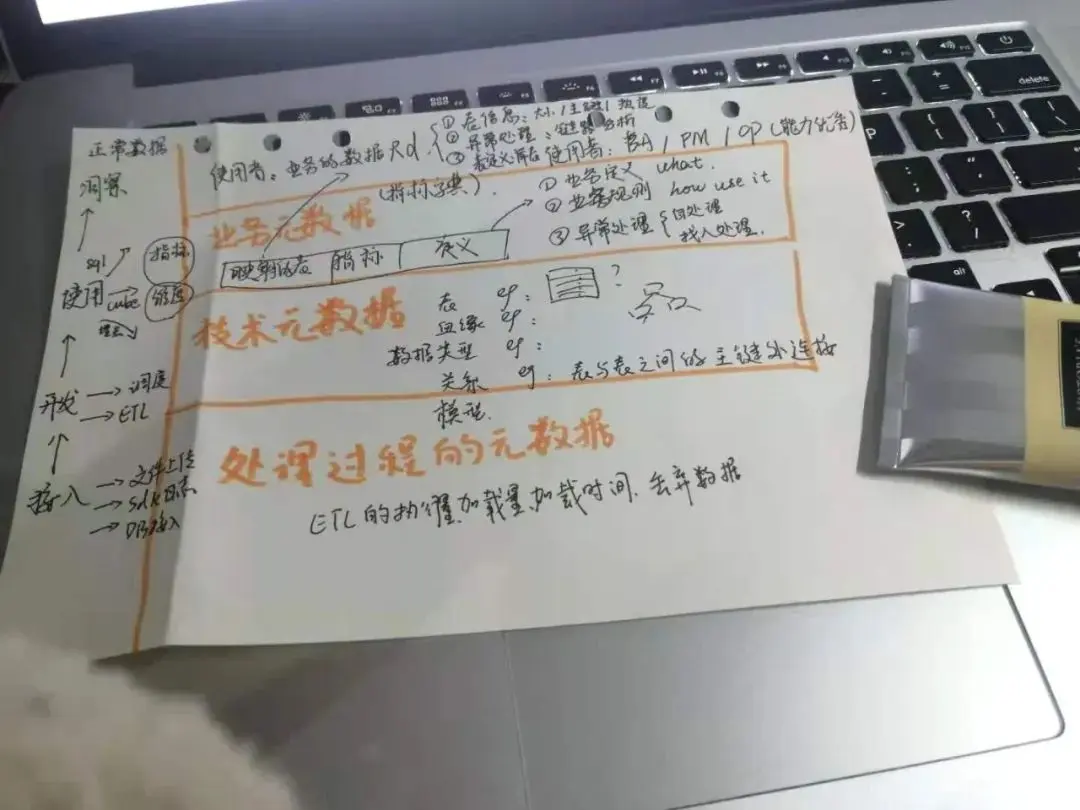 正常数据
洞察
sql
使用
cube
指标
维度
开发
调度
ETL
接入
文件上传
sdk日志
DB接入
① 表信息：大小/主题/热度
② 异常处理：链路分析
使用者：业务的数据Rd.
③ 使用者：BA / PM / op
(指标字典)
① 业务定义 what.
② 业务规则 how use it
③ 异常处理 自处理
找人处理.
业务元数据
指标
定义
技术元数据
表 eg： ?
血缘 eg：
数据类型 eg：
关系 eg：表与表之间的主键外连接
模型.
处理过程的元数据
ETL的执行、加载量、加载时间、丢弃数据
delete
alt